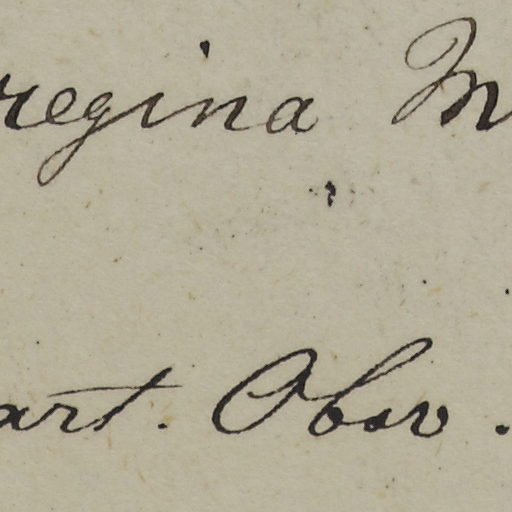 regina M
art. Obsv.